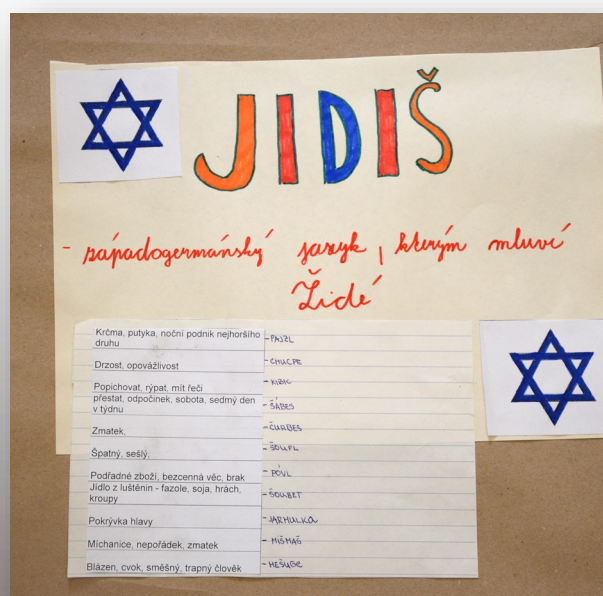 JIDIŠ
- západogermánský jazyk, kterým mluví
Židé
Krčma, putyka, noční podnik nejhoršího
druhu
- PAJZL
Drzost, opovážlivost
- CHUCPE
Popichovat, rýpat, mít řeči
- KIBIC
přestat, odpočinek, sobota, sedmý den
v týdnu
- ŠÁBES
Zmatek,
- ČURBES
Špatný, sešlý,
- ŠOUFL
Podřadné zboží, bezcenná věc, brak
- PÓVL
Jídlo z luštěnin - fazole, soja, hrách,
kroupy
- ŠOULET
Pokrývka hlavy
- JARMULKA
Míchanice, nepořádek, zmatek
- MIŠMAŠ
Blázen, cvok, směšný, trapný člověk
- MEŠUGE